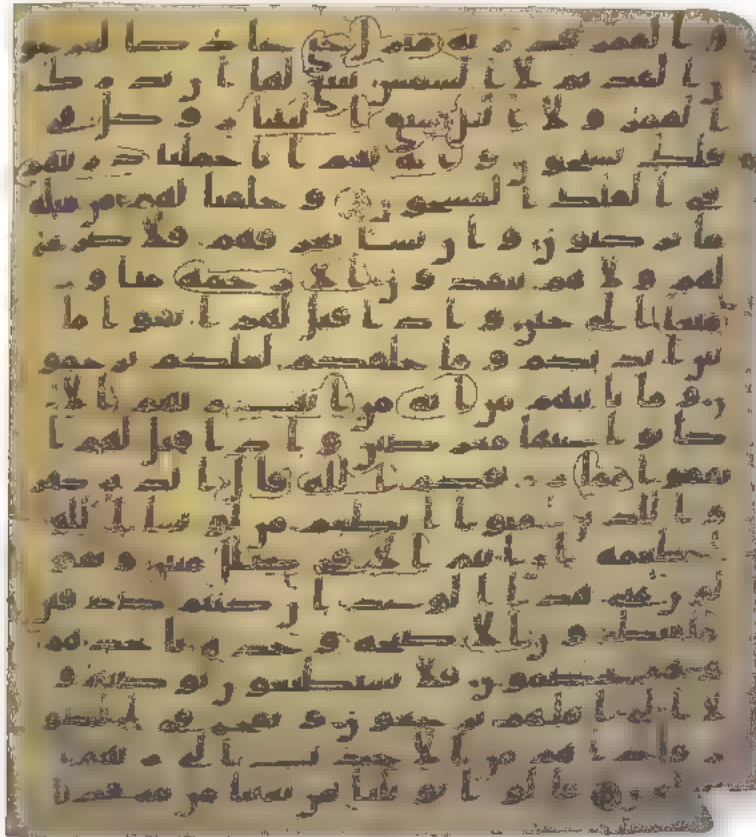 و القمر قدرنه منزل حتى عاد كالعرجو
ن القديم لا الشمس ينبغي لها ان تدرك
القمر و لا اليل سابق النهار و كل في
فلك يسبحون و اية لهم انا حملنا ذريتهم
في الفلك المشحون و خلقنا لهم من مثله
ما يركبون و ان نشا نغرقهم فلا صريخ
لهم و لا هم ينقذون الا رحمة منا و
متاعا الى حين و اذا قيل لهم اتقوا ما
بين ايديكم و ما خلفكم لعلكم ترحمو
ن و ما تاتيهم من اية من ايت ربهم الا
كانوا عنها معرضين و اذا قيل لهم ا
نفقوا مما رزقكم الله قال الذين كفر
وا للذين امنوا انطعم من لو يشا الله
اطعمه ان انتم الا في ضلل مبين و يقو
لون متى هذا الوعد ان كنتم صدقين
ما ينظرون الا صيحة وحدة تاخذهم
و هم يخصمون فلا يستطيعون توصية و
لا الى اهلهم يرجعون و نفخ في الصو
ر فاذا هم من الاجدث الى ربهم
ينسلون قالوا يويلنا من بعثنا من مرقدنا